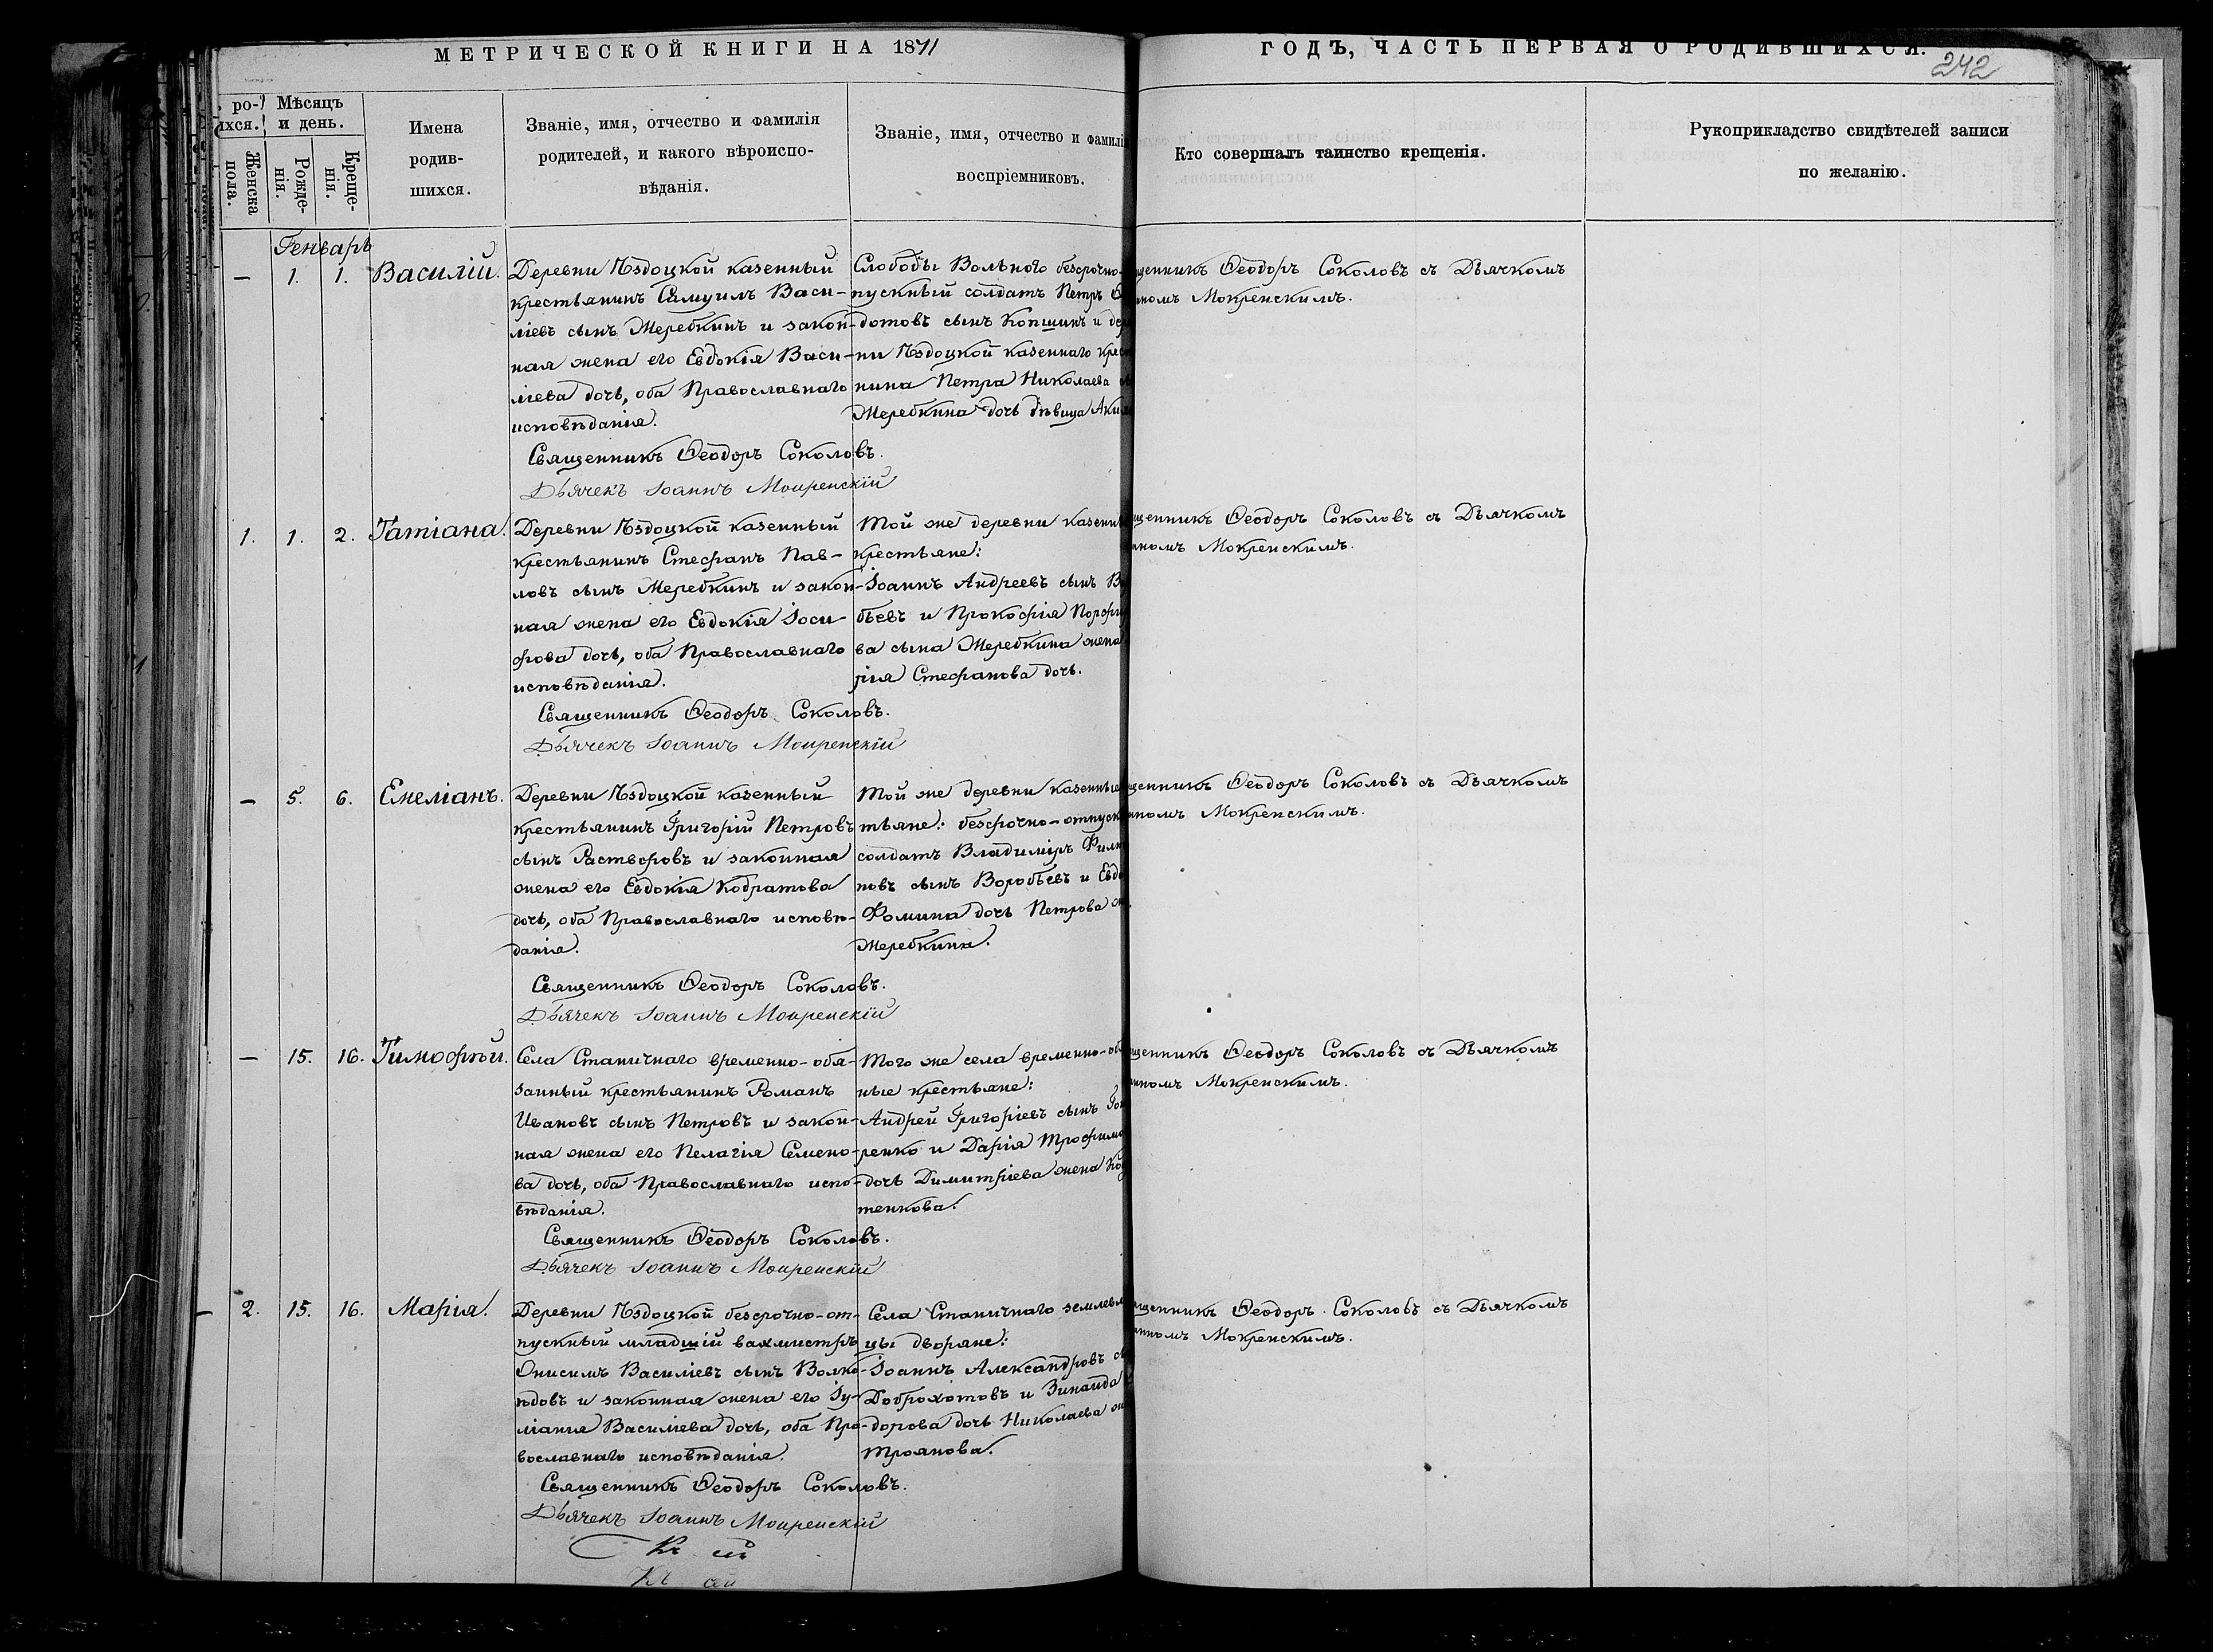 МЕТРИЧЕСКОЙ КНИГИ НА 1871
ГОДЪ, ЧАСТЬ ПЕРВАЯ О РОДИВШИХСЯ.
242
ро-
хся.
Женска
пола.
Мѣсяцъ
и день.
Рожде-
нія.
Креще-
нія.
Имена
родив-
шихся.
Званіе, имя, отчество и фамилія
родителей, и какого вѣроиспо-
вѣданія.
Званіе, имя, отчество и фамилі
воспріемниковъ.
Кто совершалъ таинство крещенія.
Рукоприкладство свидѣтелей записи
по желанію.
Генварь
— 1. 1. Василій.
Деревни Ѣздоцкой казенный
крестьянинъ Самуилъ Васи-
ліевъ сынъ Жеребкинъ и закон-
ная жена его Евдокія Васи-
ліева дочь, оба Православнаго
исповѣданія.
Священникъ Ѳеодоръ Соколовъ.
Дьячекъ Іоаннъ Мокренскій
Слободы Вольного безсрочно-
пускный солдатъ Петръ
дотовъ сынъ Копшинъ и де
ни Ѣздоцкой казеннаго крес
нина Петра Николаева
Жеребкина дочь дѣвица Аки
щенникъ Ѳеодоръ Соколовъ съ Дьячкомъ
нномъ Мокренскимъ.
1. 1. 2. Татіана.
Деревни Ѣздоцкой казенный
крестьянинъ Стефанъ Пав-
ловъ сынъ Жеребкинъ и закон-
ная жена его Евдокія Іоси-
фова дочь, оба Православнаго
исповѣданія.
Священникъ Ѳеодоръ Соколовъ.
Дьячекъ Іоаннъ Мокренскій
Той же деревни казенны
крестьяне:
Іоаннъ Андреевъ сынъ Во
бьевъ и Прокофія Порфи
ва сына Жеребкина жена
рія Стефанова дочь.
щенникъ Ѳеодоръ Соколовъ съ Дьячкомъ
нномъ Мокренскимъ.
— 5. 6. Емеліанъ.
Деревни Ѣздоцкой казенный
крестьянинъ Григорій Петровъ
сынъ Растворовъ и законная
жена его Евдокія Кодратова
дочь, оба Православнаго исповѣ-
данія.
Священникъ Ѳеодоръ Соколовъ.
Дьячекъ Іоаннъ Мокренскій
Той же деревни казенные
тьяне: безсрочно-отпуск
солдатъ Владиміръ Фили
повъ сынъ Воробьевъ и Евдо
Фомина дочь Петрова
Жеребкина.
щенникъ Ѳеодоръ Соколовъ съ Дьячкомъ
нномъ Мокренскимъ.
— 15. 16. Тимофѣй.
Села Станичнаго временно-обя-
занный крестьянинъ Романъ
Ивановъ сынъ Петровъ и закон-
ная жена его Пелагія Семено-
ва дочь, оба Православнаго испо-
вѣданія.
Священникъ Ѳеодоръ Соколовъ.
Дьячекъ Іоаннъ Мокренскій
Того же села временно-об
ные крестьяне:
Андрей Григоріевъ сынъ Гон
ренко и Дарія Трофимо
дочь Димитріева жена Ко
тенкова.
щенникъ Ѳеодоръ Соколовъ съ Дьячкомъ
нномъ Мокренскимъ.
2. 15. 16. Марія.
Деревни Ѣздоцкой безсрочно-от-
пускный младшій вахмистръ
Онисимъ Василіевъ сынъ Волко-
ѣдовъ и законная жена его Іу-
ліанія Василіева дочь, оба Пра-
вославнаго исповѣданія.
Священникъ Ѳеодоръ Соколовъ.
Дьячекъ Іоаннъ Мокренскій
Села Станичнаго землевл
цы дворяне:
Іоаннъ Александровъ с
Доброхотовъ и Зинаида
дорова дочь Николаева
Троянова.
щенникъ Ѳеодоръ Соколовъ съ Дьячкомъ
нномъ Мокренскимъ.